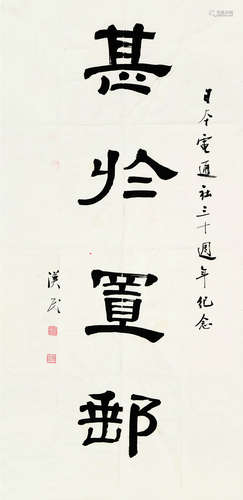 日本電通社三十週年紀念
甚於置郵
漢民